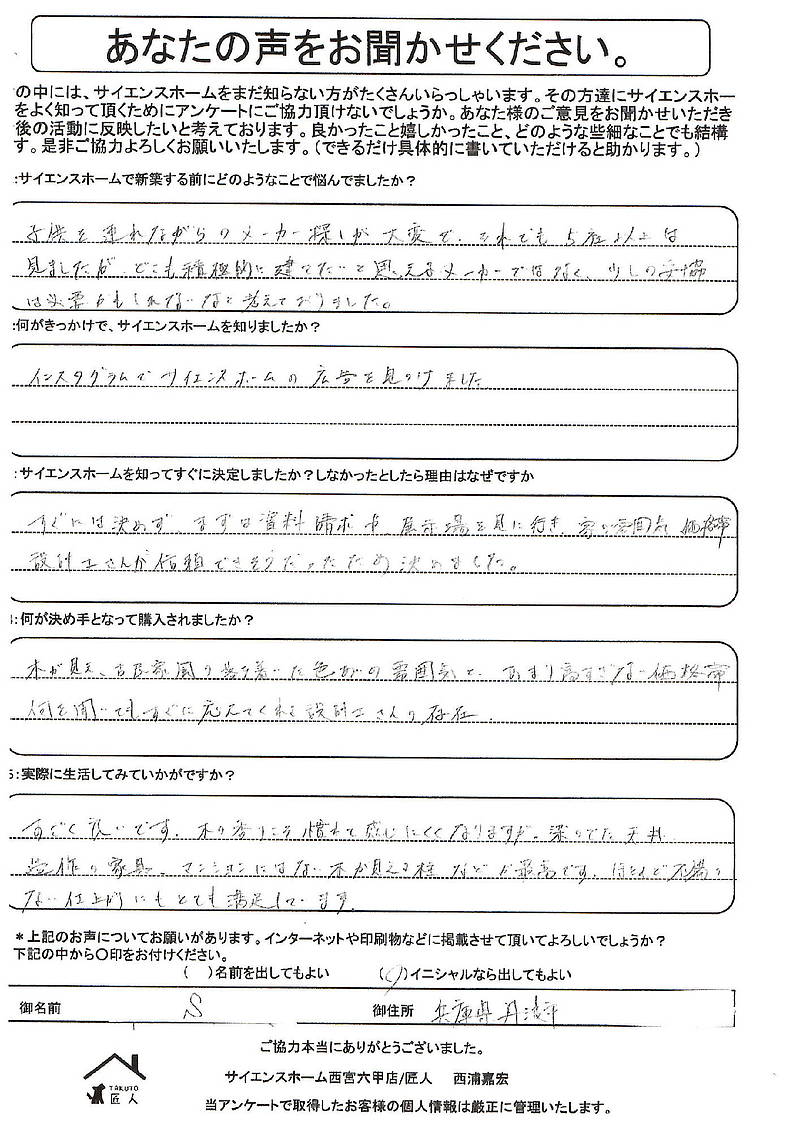 あなたの声をお聞かせください。
の中には、サイエンスホームをまだ知らない方がたくさんいらっしゃいます。その方達にサイエンスホー
をよく知って頂くためにアンケートにご協力頂けないでしょうか。あなた様のご意見をお聞かせいただき
後の活動に反映したいと考えております。良かったこと嬉しかったこと、どのような些細なことでも結構
す。是非ご協力よろしくお願いいたします。(できるだけ具体的に書いていただけると助かります。)
:サイエンスホームで新築する前にどのようなことで悩んでましたか?
子供を連れながらのメーカー探しが大変で、それでも5社以上は
見ましたが、どこも積極的に建てたいと思えるメーカーではなく、少しの妥協
は必要かもしれないなと考えておりました。
:何がきっかけで、サイエンスホームを知りましたか?
インスタグラムでサイエンスホームの広告を見つけました
:サイエンスホームを知ってすぐに決定しましたか?しなかったとしたら理由はなぜですか
すぐには決めず、まずは資料請求や、展示場を見に行き、家の雰囲気 価格帯
設計士さんが信頼できそうだったため決めました。
:何が決め手となって購入されましたか?
木が見え、古民家風の落ち着いた色味の雰囲気と、あまり高すぎない価格帯
何を聞いてもすぐに応えてくれる設計士さんの存在.
5:実際に生活してみていかがですか?
すごく良いです。木の香りこそ慣れて感じにくくなりますが。梁のでた天井.
造作の家具、マンションにはない木が見える柱などが最高です。ほとんど不満の
ない仕上がりにもとても満足しています.
*上記のお声についてお願いがあります。インターネットや印刷物などに掲載させて頂いてよろしいでしょうか?
下記の中から〇印をお付けください。
( )名前を出してもよい (〇)イニシャルなら出してもよい
御名前 S 御住所 兵庫県丹波市
ご協力本当にありがとうございました。
サイエンスホーム西宮六甲店/匠人 西浦嘉宏
TAKUTO
匠人
当アンケートで取得したお客様の個人情報は厳正に管理いたします。